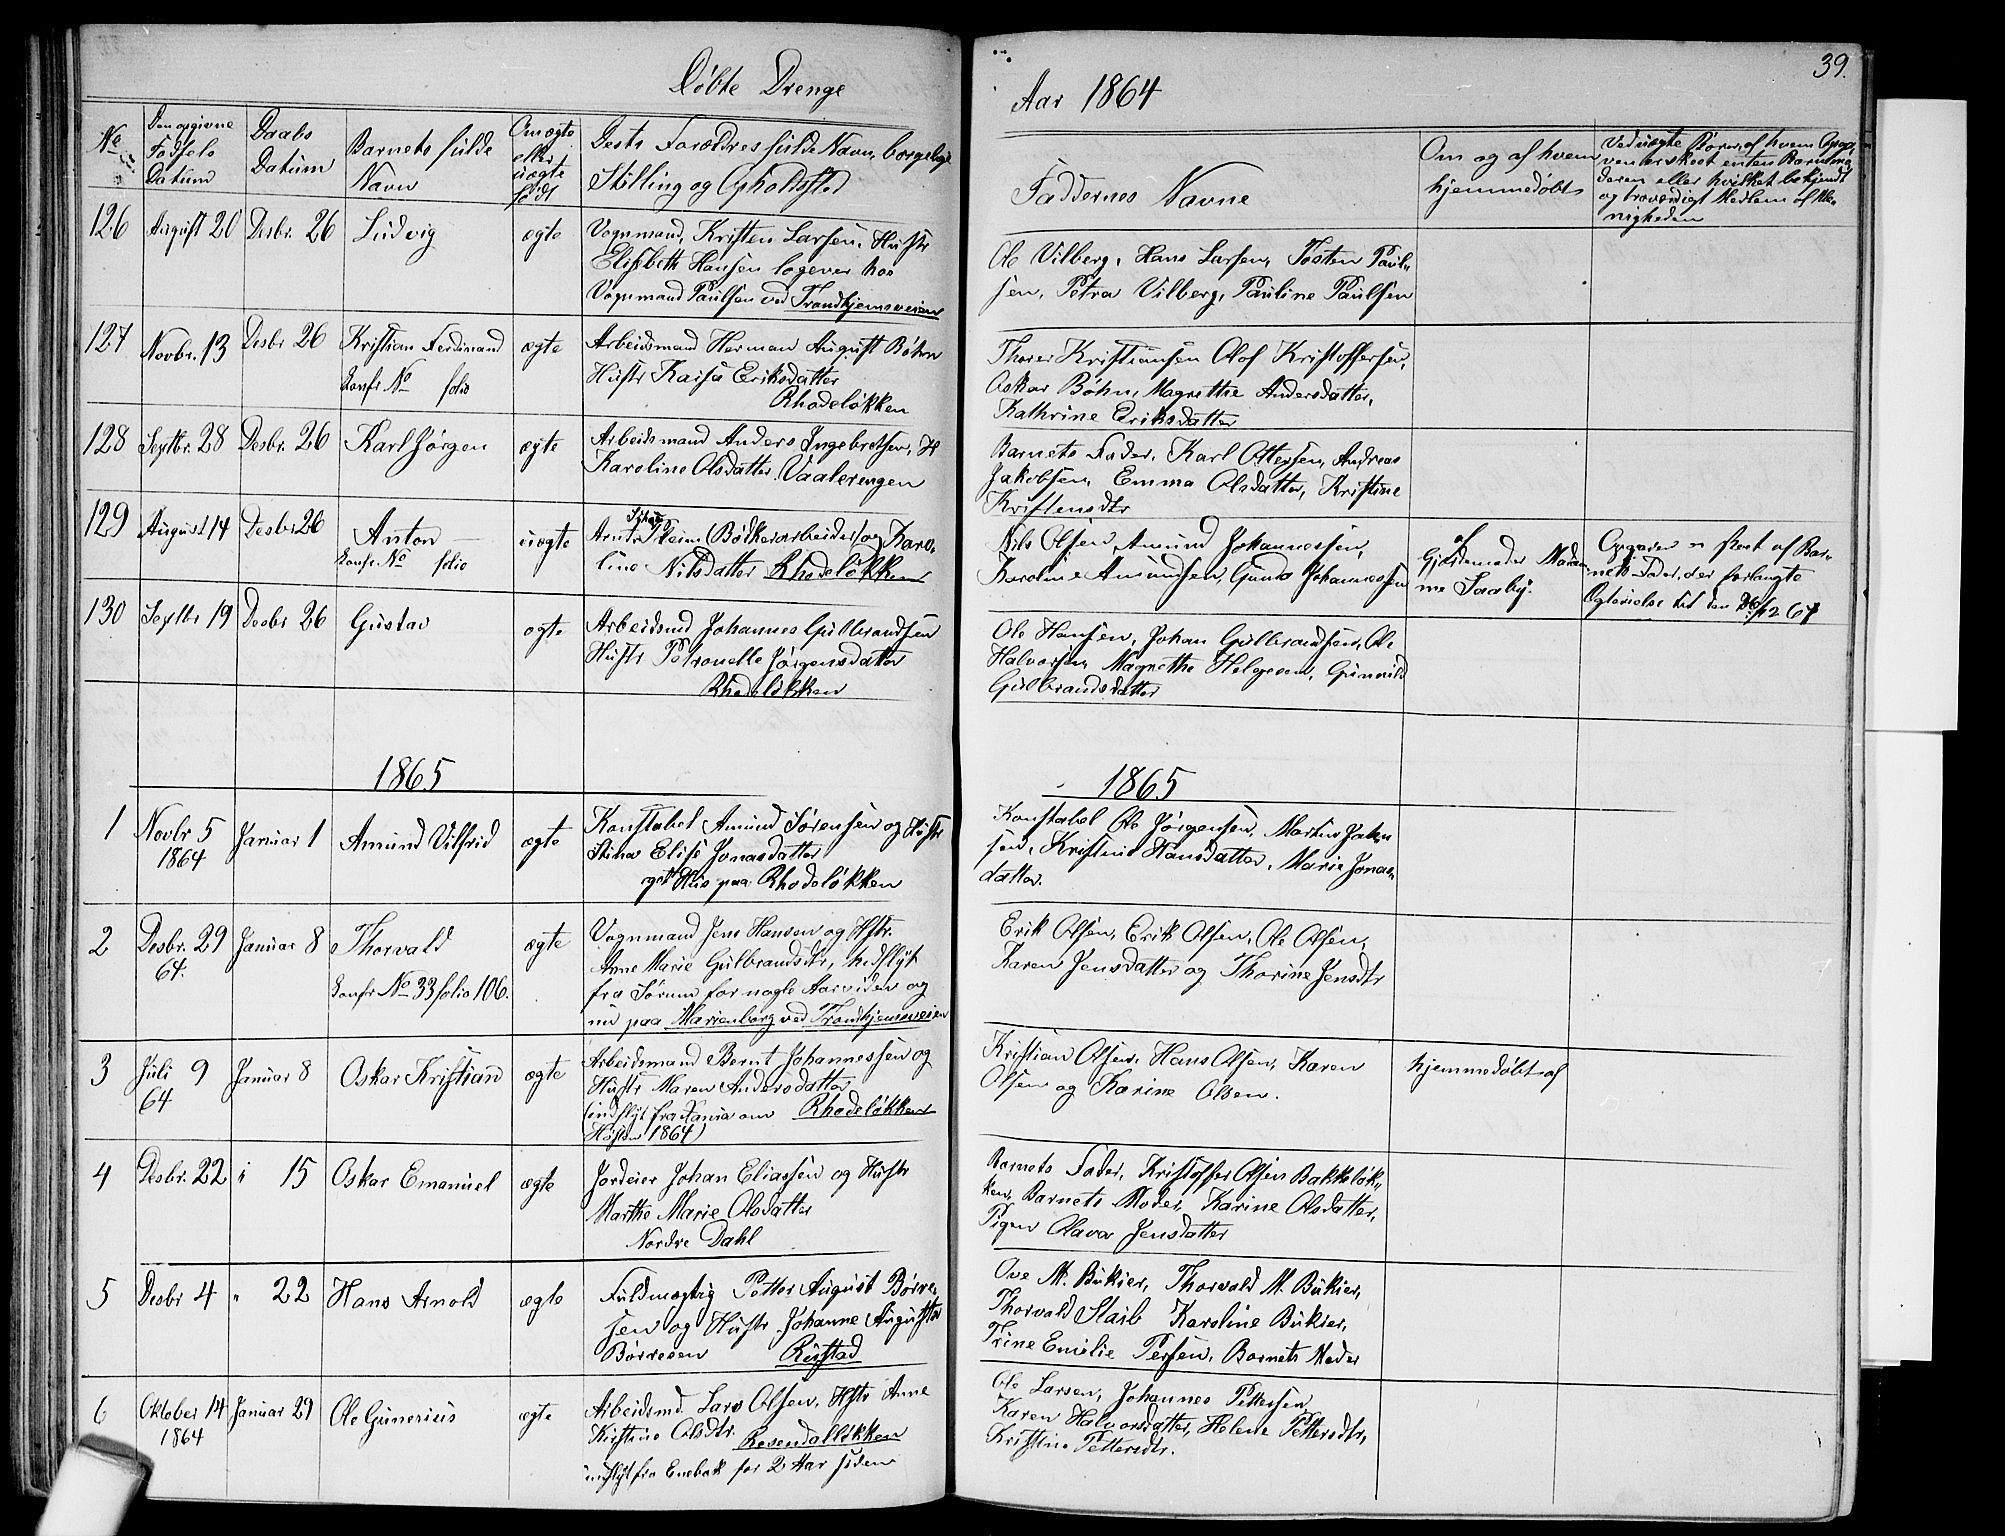 Døbte Drenge
No
Den opgivne
Fødsels
Datum
Daabs
Datum
Barnets fulde
Navn
Om ægte
eller
uægte
født
Dets Forældres fulde Navn, borgelige
Stilling og Opholdsted
126 August 20 Desbr. 26 Ludvig ægte Vognmand, Kristen Larsen, Hustr
Elisebeth Hansen logever hos
Vognmand Paulsen ved Trondhjemsveien
127 Novbr. 13 Desbr 26 Kristian Ferdinand ægte Arbeidsmand Herman August Bøhn
Konfr No folio Hustr Kaisa Eriksdatter
Rhodeløkken
128 Septbr. 28 Desbr. 26 Karl Jørgen ægte Arbeidsmand Anders Ingebretsen, H
Karoline Olsdatter. Vaalerengen
129 August 14 Desbr 26 Anton uægte (Bødkerarbeider) og Karo-
Konfr No folio line Nilsdatter Rhodeløkken
130 Septbr 19 Desbr 26 Gustav ægte Arbeidsmd Johannes Gulbrandsen
Hustr Petronelle Jørgensdater
Rhodeløkken
1865
1 Novbr 5 Januar 1 Amund Vilfrid ægte Konstabel Amund Sørensen og Hustr
1864 Stina Elise Jonasdatter
eget Hus paa Rhodeløkken
2 Desbr. 29 Januar 8 Thorvald ægte Vognmand Jens Hansen og Hstr.
64. Anne Marie Gulbrandsdtr, indflyt
Konfr No 33 folio 106. fra Sørum for nogle Aar siden og
nu paa Marienborg ved Trondhjemsveien
3 Juli 9 Januar 8 Oskar Kristian ægte Arbeidsmand Bernt Johannessen og
64 Hustr Maren Andersdatter
(indflyt fra Xania om Rhodeløkken
Høsten 1864)
4 Desbr. 22 " 15 Oskar Emanuel ægte Jordeier Johan Eliassen og Hustr
Marthe Marie Olsdatter
Nordre Dahl
5 Desbr 4 " 22 Hans Arnold ægte Fuldmægtig Petter August Børre-
sen og Hustr Johanne Augusta
Børresen Rustad
6 Oktober 14 Januar 29 Ole Gunerius ægte Arbeidsmd. Lars Olsen, Hstr Anne
1864 Kirstine Olsdtr. Rosendalløkken
indflyt fra Enebak for 2 Aar siden
39.
Aar 1864
Faddernes Navne
Om og af hvem
hjemmedøbt
Ved uægte Børn, af hvem Opga-
ven er skeet enten Barnemo-
deren eller hvilket bekjendt
og troværdigt Medlem af Me-
nigheden
Ole Vilberg, Hans Larsen, Tosten Paul-
sen, Petra Vilberg, Pauline Paulsen
Thorer Kristiansen Olof Kristoffersen,
Oskar Bøhn, Magrethe Andersdatter,
Kathrine Eriksdatter
Barnets Fader, Karl Ottersen, Andreas
Jakobsen, Emma Olsdatter, Kristine
Kristensdtr
Nils Olsen Amund Johannessen,
Karoline Amundsen, Gunda Johannessen
af
Gjordemoder Mada-
me Saaby.
Opgaven er skeet af Bar-
nets Fader, der forlangte
Ægtevielse til den 26/12 64
Ole Hansen, Johan Gulbrandsen, Ole
Halvorsen, Magrethe Helgesen, Gunnild
Gulbrandsdatter
1865
Konstabel Ole Jørgensen, Martin Johan-
sen, Kristine Hansdatter, Marie Jonas-
datter.
Erik Olsen, Erik Olsen, Ole Olsen,
Karen Jensdatter og Thorine Jensdtr
Kristian Olsen, Hans Olsen, Karen
Olsen og Karine Olsen.
hjemmedøbt af
Barnets Fader, Kristoffer Olsen Bakkeløk-
ken, Barnets Moder, Karine Olsdatter,
Pigen Olava Jensdatter
Ove M. Bukier, Thorvald M. Bukier,
Thorvald Staib Karoline Bukier,
Trine Emilie Persen, Barnets Moder
Ole Larsen, Johannes Pettersen
Karen Halvorsdatter, Helene Pettersdtr,
Kristine Pettersdtr.